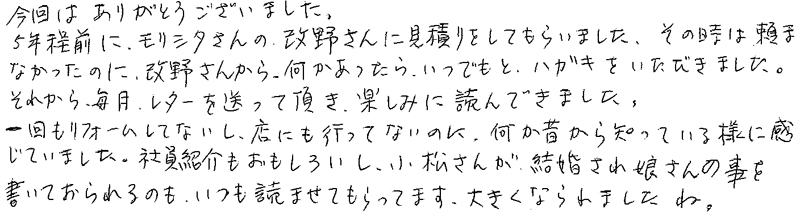 今回は ありがとうございました。
5年程前に、モリシタさんの 改野さんに見積りをしてもらいました、その時は 頼ま
なかったのに、改野さんから、何かあったら、いつでもと、ハガキをいただきました。
それから、毎月、レターを送って頂き、楽しみに 読んできました。
一回もリフォームしてないし、店にも行ってないのに、何か昔から知っている様に感
じていました。社員紹介もおもしろいし、小松さんが、結婚され娘さんの事を
書いておられるのも、いつも読ませてもらってます、大きくなられましたね。